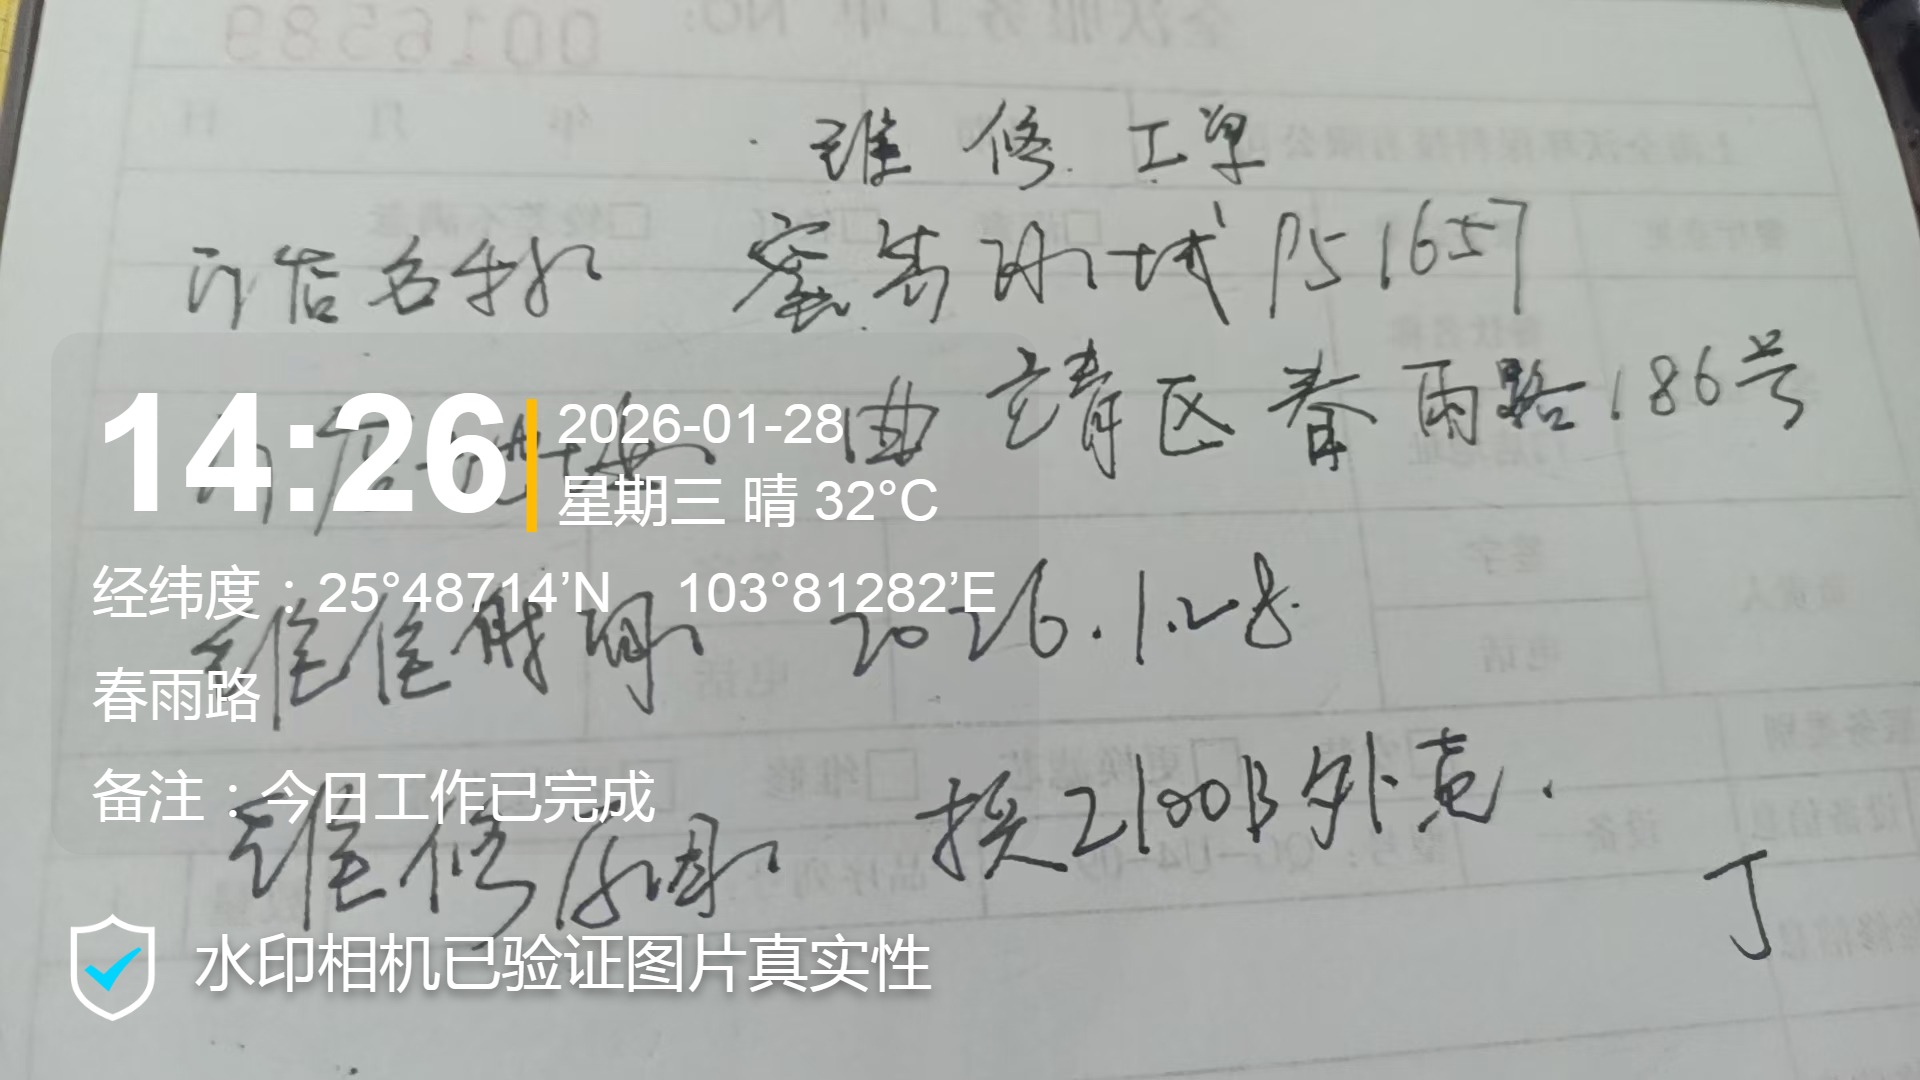 维修工单
门店名称 蜜雪冰城 P51657
门店地址 曲靖区春雨路186号
14:26
2026-01-28
星期三 晴 32°C
经纬度：25°48714’N 103°81282’E
维修时间 2026.1.28
春雨路
备注：今日工作已完成
维修原因 换2100B外壳.
丁
水印相机已验证图片真实性